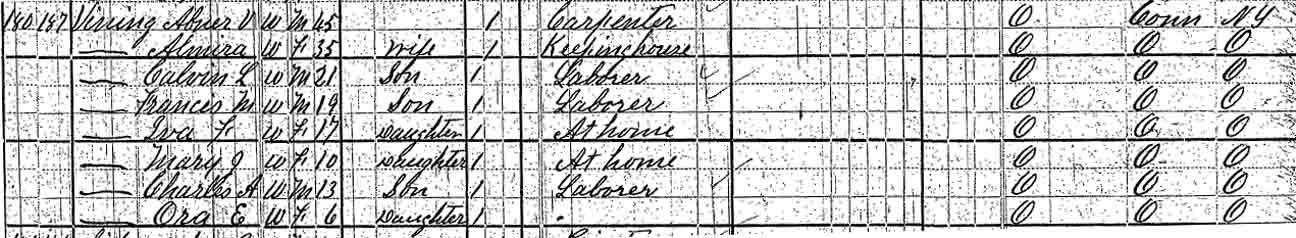 180 187 Vining Abner V W M 45 1 Carpenter O Conn NY
— Almira W F 35 Wife 1 Keepinghouse O O O
— Calvin L W M 21 Son 1 Laborer O O O
— Francis M W M 19 Son 1 Laborer O O O
— Iva F W F 17 Daughter 1 At home O O O
— Mary J W F 10 Daughter 1 At home O O O
— Charles A W M 13 Son 1 Laborer O O O
— Ora E W F 6 Daughter 1 O O O